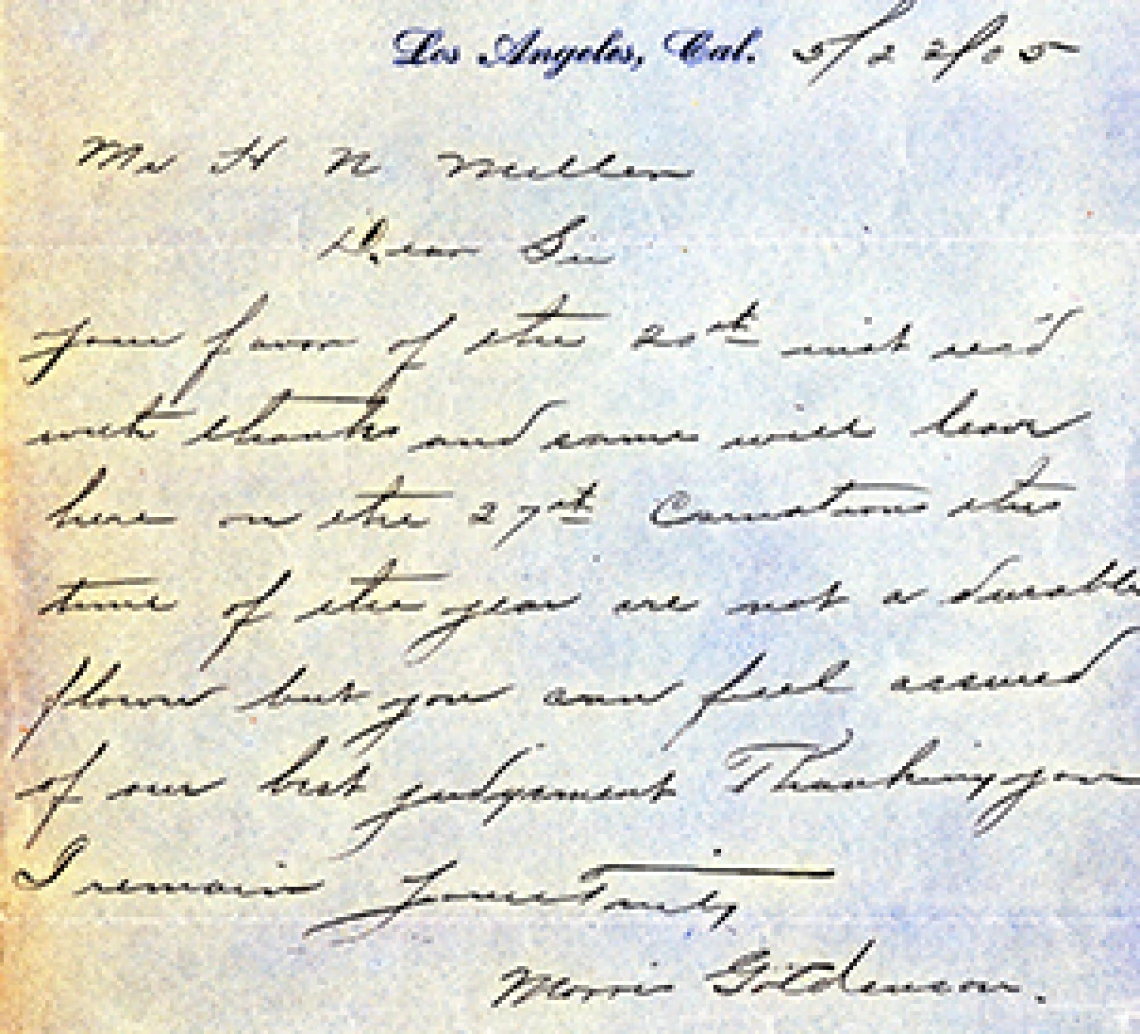 Los Angeles, Cal. 5/22/05
Mr H N Miller
Dear Sir
your favor of the 20st inst rec'd
with thanks and same will leave
here on the 27st Carnations this
time of the year are not a durable
flower but you can feel assured
of our best judgement Thanking you
I remain Yours Truly
Morris Goldenson.